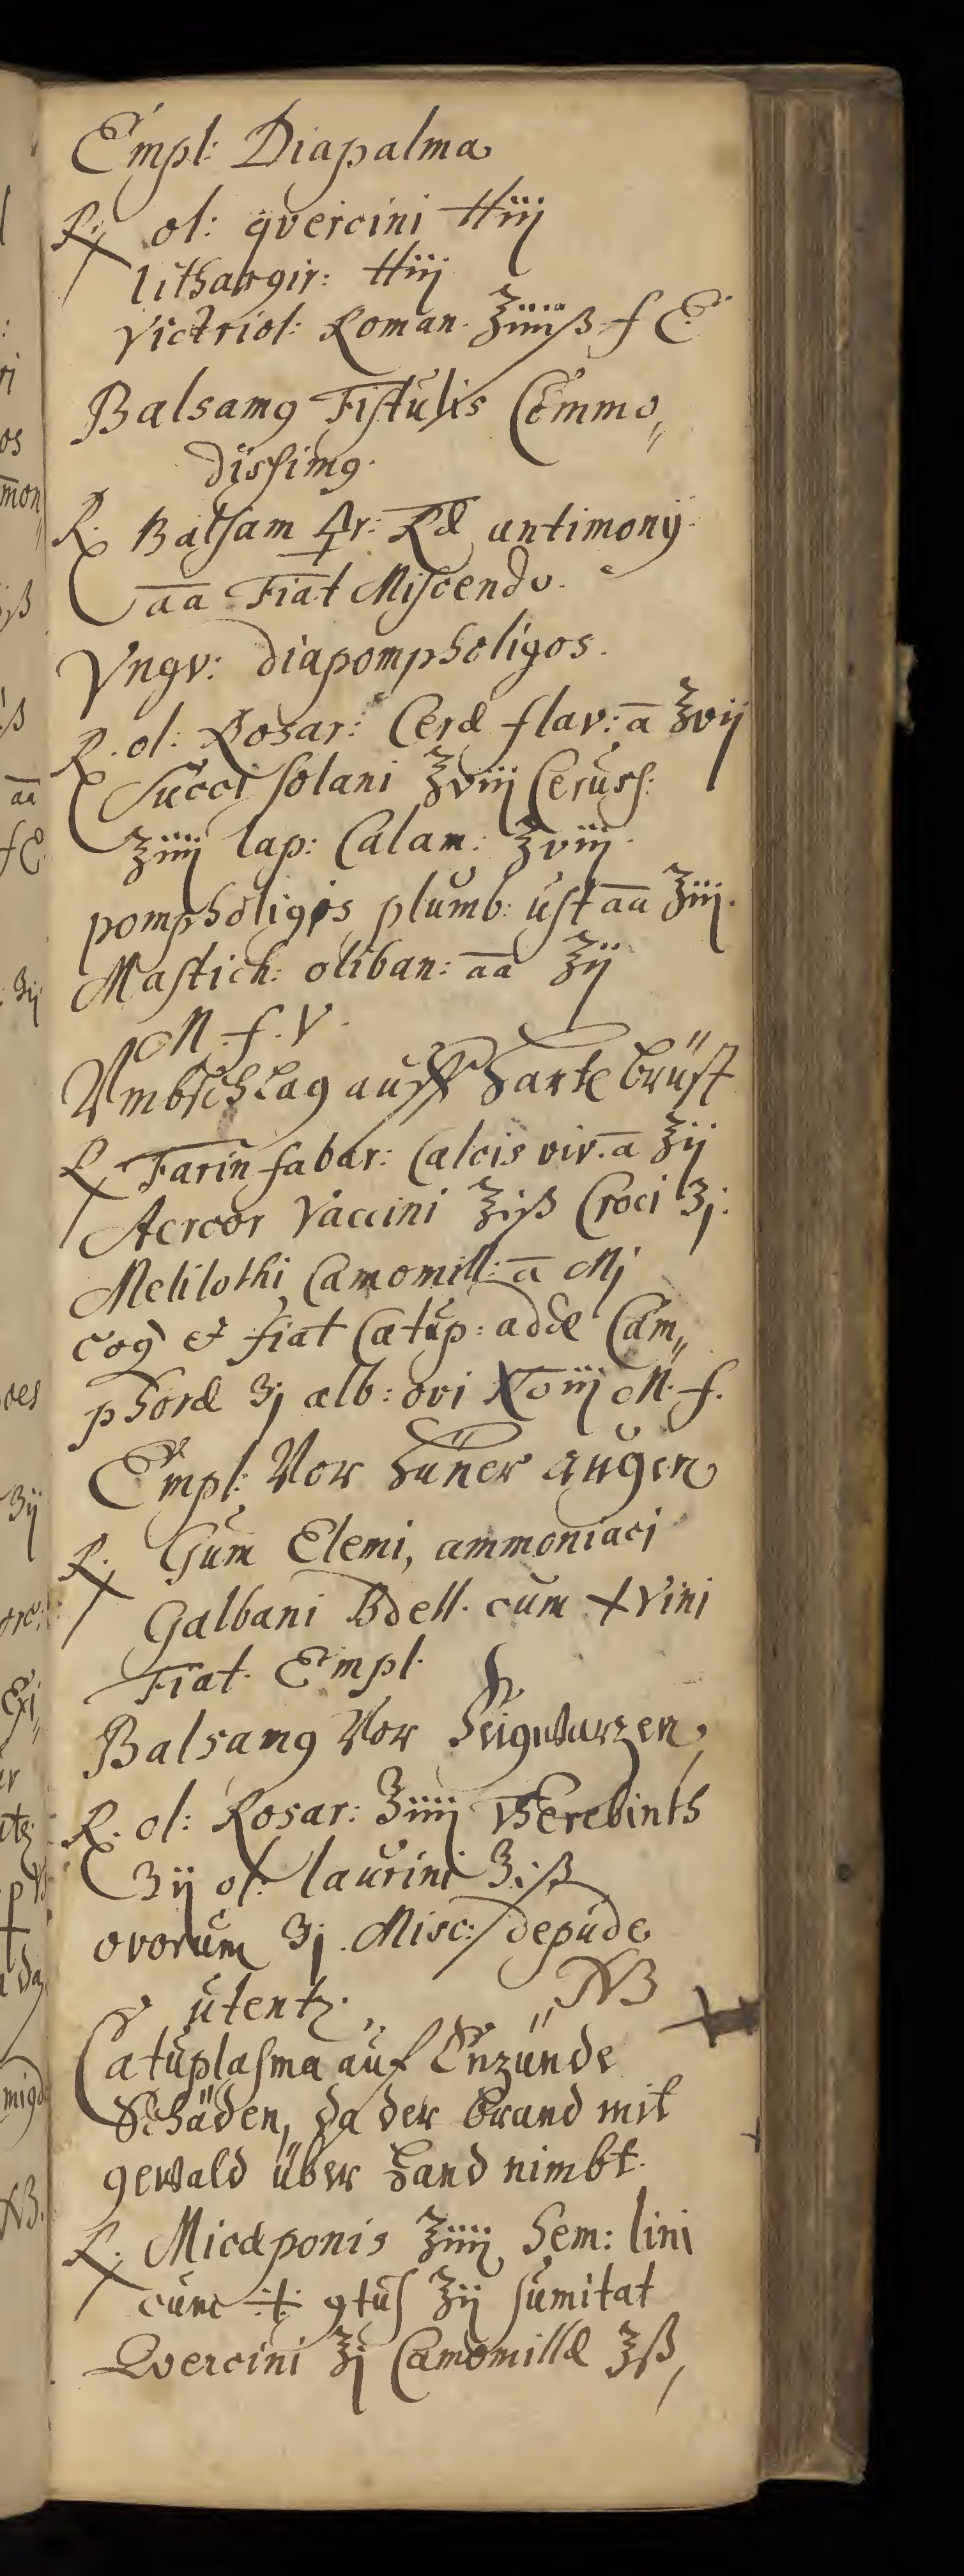 Empl: Diapalma
℞. ol: qvercini ℔iij
lithargir: ℔iij
Victriol: Roman. ℥iiiiß. f E.
Balsamꝯ Fistulis Com̃o„
dissimꝯ.
℞. Balsam 🜍r: Ræ antimonÿ.
āā Fiat Miscendo.
Vngv: diapompholigos.
℞. ol: Rosar: Ceræ flav: ā ℥vij
Succi solani ℥viij Ceruss:
℥iiij lap: Calam: ℥viij.
pompholigis plumb: ust āā ℥iij.
Mastich: oliban: āā ℥ij
M. f. V.
Vmbschlag auff harte brüst
℞. Farin fabar: Calcis viv. ā ℥ij
Vaccini ℥iß Croci ʒj:
Melilothi Camomill: ā Mj
coq̃ et fiat Catap: addæ Cam„
phoræ ʒj alb: ovi No iij M. f.
Empl: Vor hüner augen
℞. Gum̃ Elemi, ammoniaci
Galbani Bdell. cum ✢ Vini
Fiat. Empl.
Balsamꝯ Vor Feigwarzen,
℞. ol: Rosar: ʒiiij Therebinth
ʒij ol: laurini ʒiß
ovorum ʒj. Misc:
utentꝫ. NB
Cataplasma auf Enzünde
Schäden, da der brand mit
gewald über hand nimbt.
℞. Micæ ponis ℥iiij Sem: lini
cum ꝯtus ℥ij sumitat
Qvercini ℥j Camomillæ ℥ß,